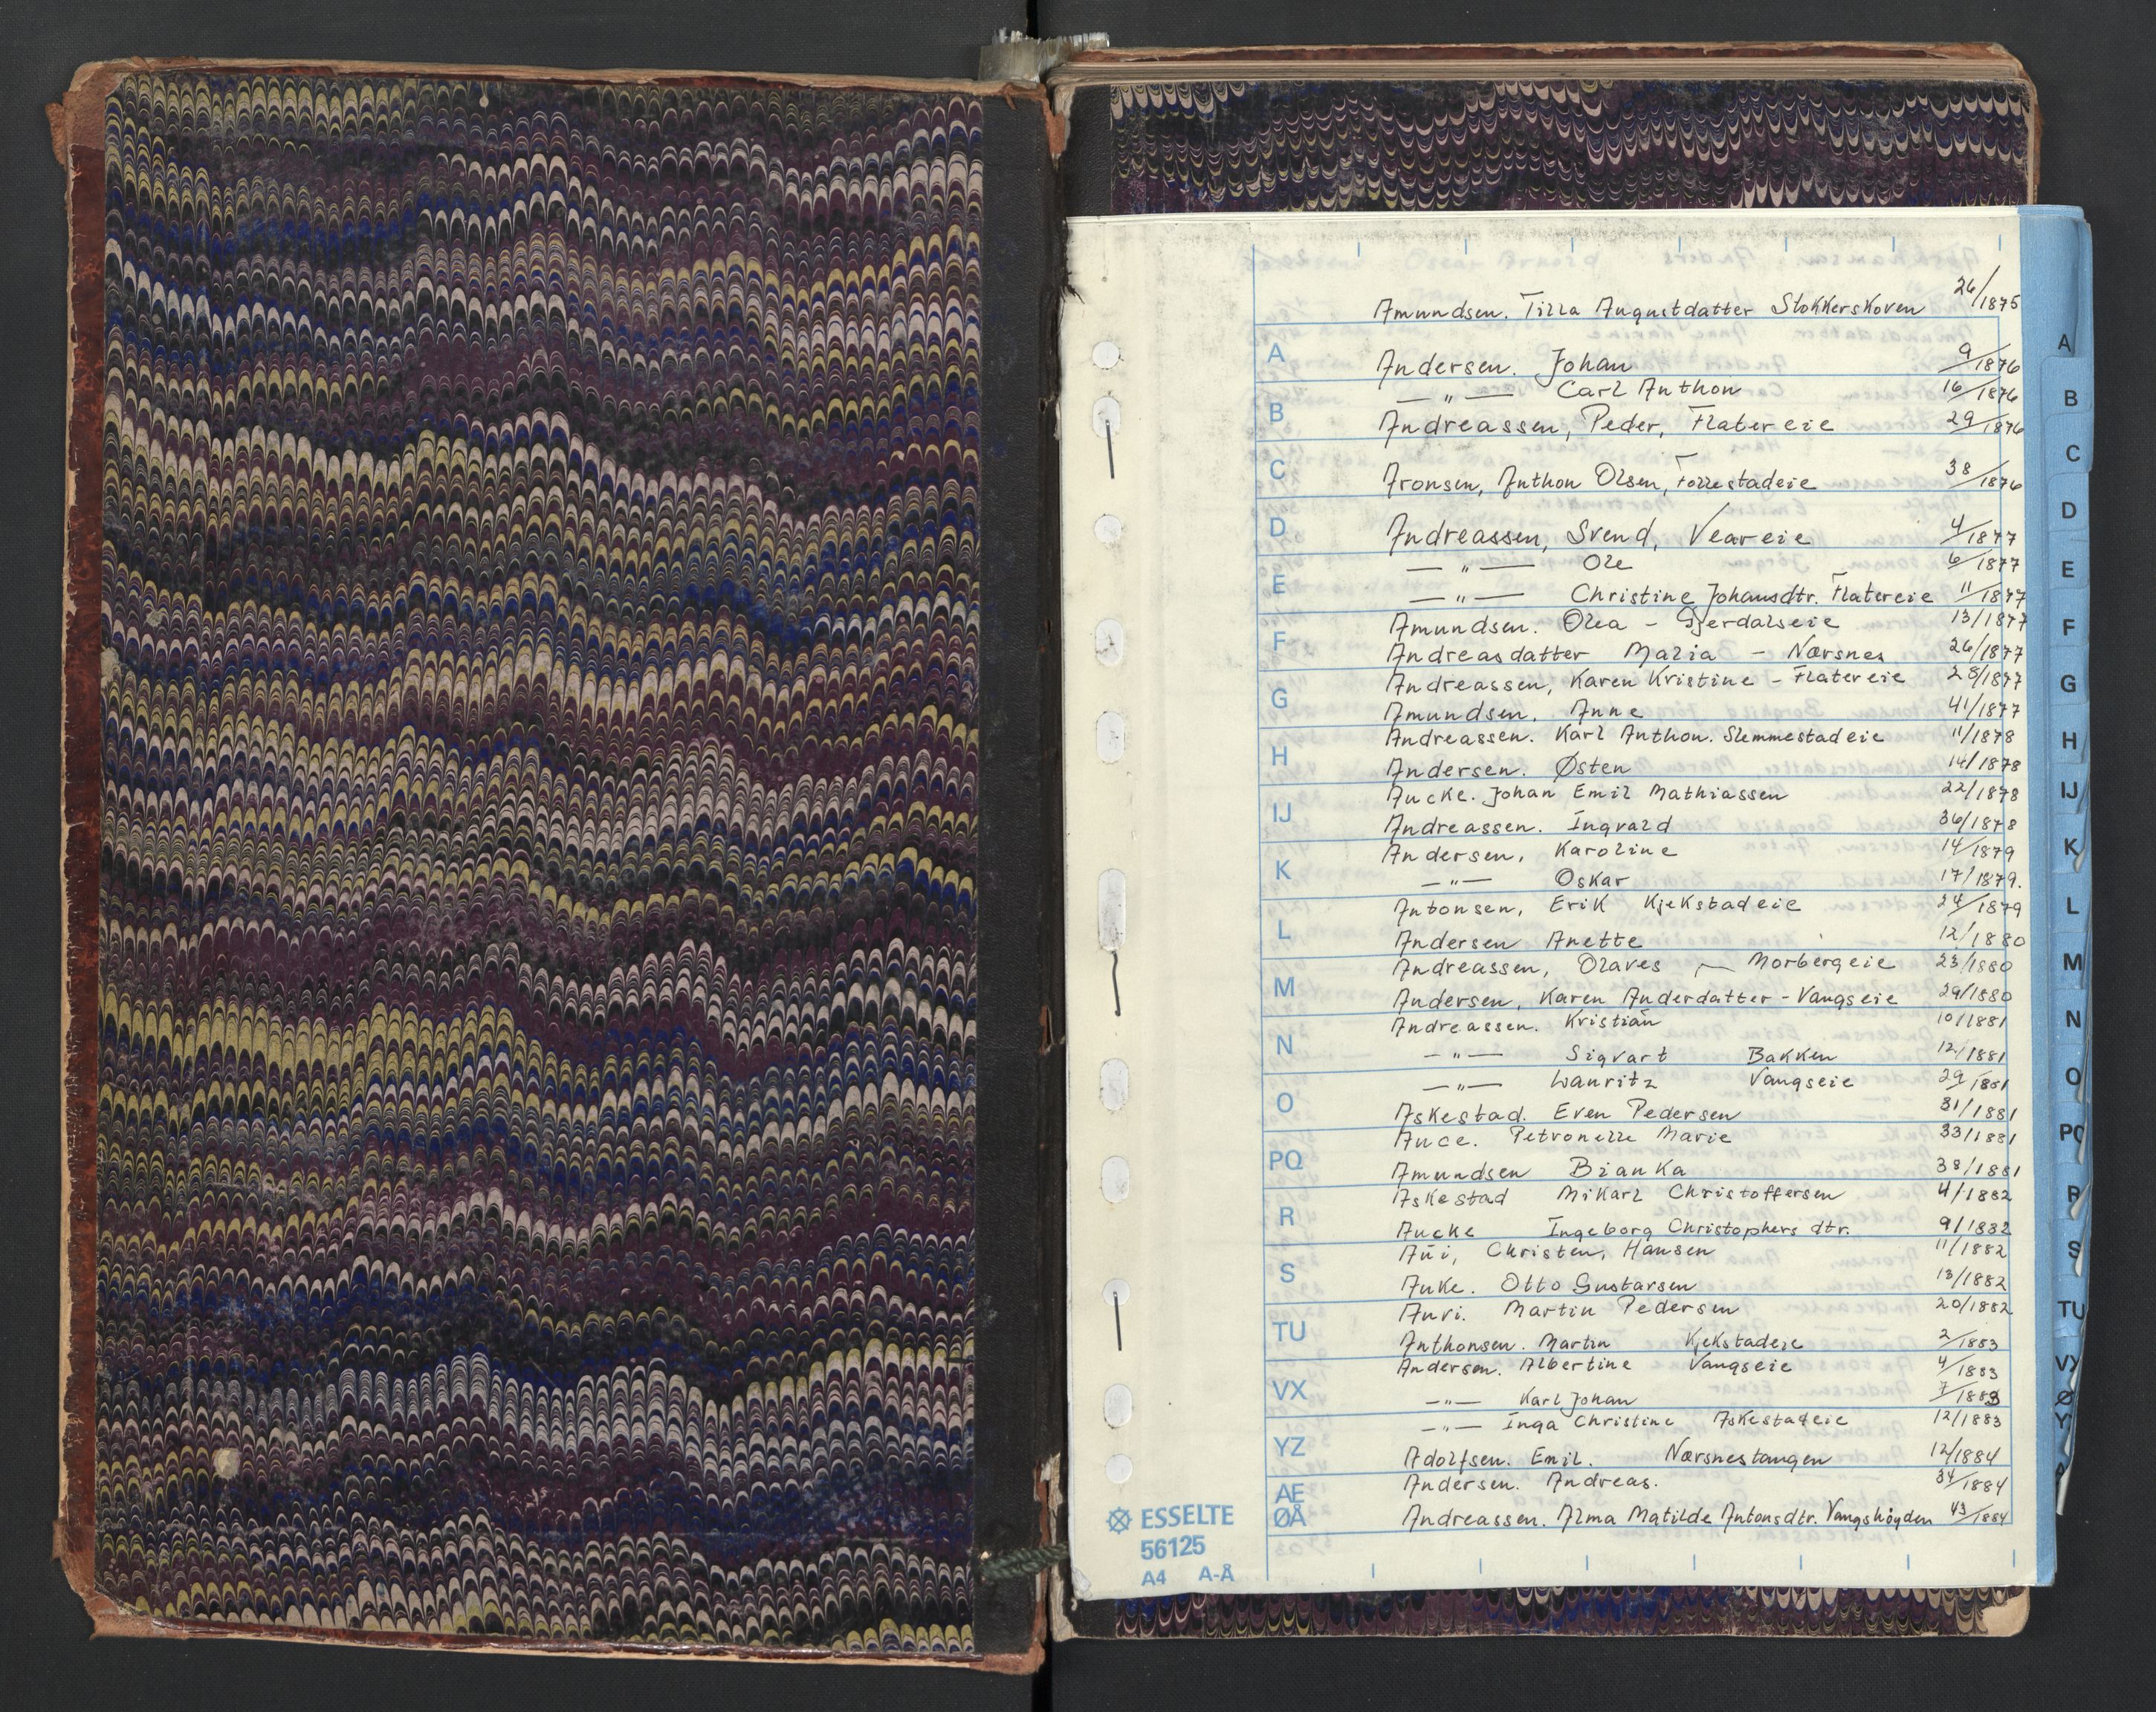 Amundsen. Tilla Augustdatter Stokkerskoven 26/1875
A
Andersen. Johan 9/1876
— " — Carl Anthon 16/1876
B
Andreassen, Peder, Flatereie 29/1876
C
Aronsen, Anthon Olsen, Follestadeie 38/1876
D
Andreassen, Svend, Veareie 4/1877
— " — Ole 6/1877
E
— " — Christine Johansdtr. Flatereie 11/1877
Amundsen. Olea - Gjerdalseie 13/1877
F
Andreasdatter Malia - Nærsnes 26/1877
Andreassen, Karen Kristine - Flatereie 28/1877
G
Amundsen. Anne 41/1877
Andreassen. Karl Anthon. Slemmestadeie 11/1878
H
Andersen. Østen 14/1878
Aucke. Johan Emil Mathiassen 22/1878
IJ
Andreassen. Ingvald 36/1878
Andersen, Karoline 14/1879
K
— " — Oskar 17/1879.
Antonsen, Erik Kjekstadeie 24/1879
L
Andersen Anette 12/1880
Andreassen, Olaves — Morbergeie 23/1880
M
Andersen, Karen Anderdatter - Vangseie 29/1880
Andreassen. Kristian 10/1881
N
— " — Sigvart Bakken 12/1881
— " — Lauritz Vangseie 29/1881
O
Askestad. Even Pedersen 31/1881
Auce. Petronelle Marie 33/1881
PQ
Amundsen Bianka 38/1881
Askestad Mikarl Christoffersen 4/1882
R
Aucke Ingeborg Christophers dtr. 9/1882
Aui, Christen, Hansen 11/1882
S
Auke. Otto Gustavsen 13/1882
Auvi. Martin Pedersen 20/1882
TU
Anthonsen. Martin Kjekstadeie 2/1883
Andersen. Albertine Vangseie 4/1883
VX
— " — Karl Johan 7/1883
— " — Inga Christine Askestadeie 12/1883
YZ
Adolfsen. Emil. Nærsnestangen 12/1884
Andersen. Andreas. 34/1884
AE
ØÅ
Andreassen. Alma Matilde Antonsdtr. Vangshøgden 43/1884
ESSELTE
56125
A4 A-Å
A
B
C
D
E
F
G
H
IJ
K
L
M
N
O
PQ
R
S
TU